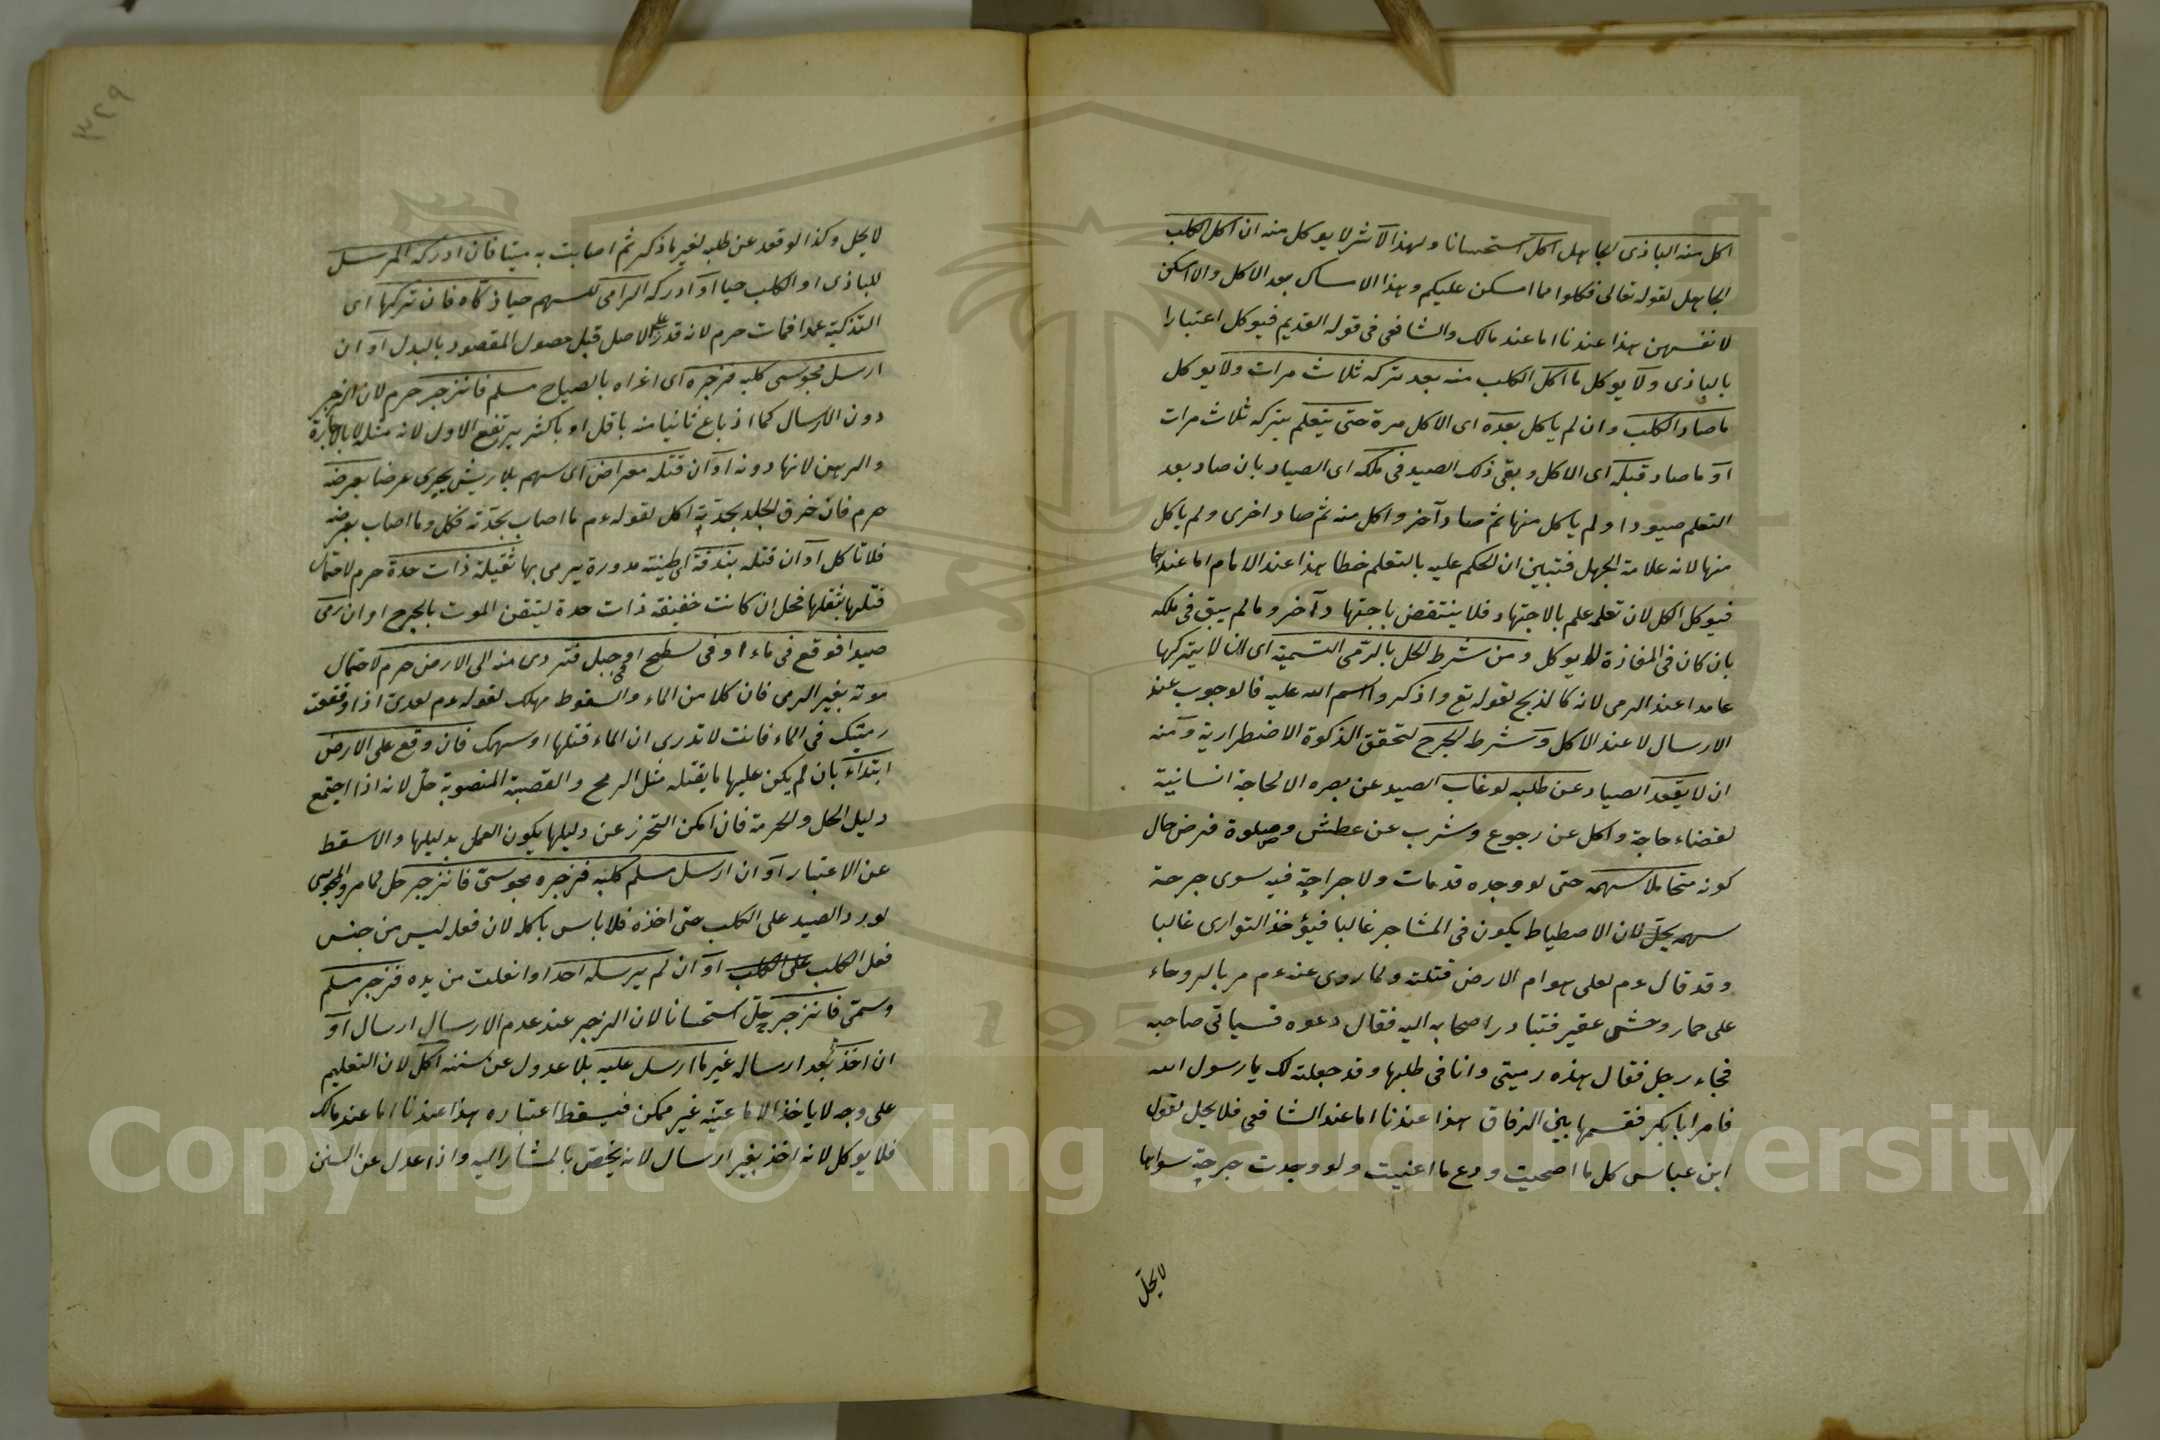 اكل منه البازى الجاهل اكل استحسانا ولهذا الاثر لا يوكل منه ان اكل الكلب
الجاهل لقوله تعالى فكلوا مما امسكن عليكم وهذا الامساك بعد الاكل والامسكن
لانفسهن هذا عندنا اما عند مالك والشافعى فى قوله القديم فيوكل اعتبارا
بالبازى ولا يوكل ما اكل الكلب منه بعد تركه ثلاث مرات ولا يوكل
ما صاد الكلب وان لم ياكل بعده اى الاكل مرة حتى يتعلم بتركه ثلاث مرات
او ما صاد قبله اى الاكل وبقى ذلك الصيد فى ملكه اى الصياد بان صاد بعد
التعلم صيودا ولم ياكل منها ثم صاد آخر واكل منه ثم صاد اخرى ولم ياكل
منها لانه علامة الجهل فتبين ان الحكم عليه بالتعلم خطا هذا عند الامام اما عندهما
فيوكل الكل لان تعلمه علم بالاجتهاد فلا ينتقض باجتهاد آخر وما لم يبق فى ملكه
بان كان فى المفازة لا يوكل ومن شرط الحل بالرمى التسمية اى ان لا يتركها
عامدا عند الرمى لانه كالذبح لقوله تع واذكروا اسم الله عليه فالوجوب عند
الارسال لا عند الاكل وشرط الجرح لتحقق الذكوة الاضطرارية ومنه
ان لا يقعد الصياد عن طلبه لو غاب الصيد عن بصره الا لحاجة انسانية
لقضاء حاجة واكل عن رجوع وشرب عن عطش وصلوة فرض حال
كونه متحاملا سهمه حتى لو وجده قد مات ولا جراحة فيه سوى جرحة
سهمه يحل لان الاصطياد يكون فى المشاجر غالبا فيؤخذ التوارى غالبا
وقد قال عم لعلى هوام الارض قتلته ولما روى عنه عم مر بالروحاء
على حمار وحشى عقير فتبادر اصحابه اليه فقال دعوه فسياتى صاحبه
فجاء رجل فقال هذه رميتى وانا فى طلبها وقد جعلته لك يا رسول الله
فامر ابا بكر فقسمها بين الرفاق هذا عندنا اما عند الشافعى فلا يحل لقول
ابن عباس كل ما اصميت ودع ما انميت ولو وجدت جرحة سواها
لا يحل
٣٢٩
لا يحل وكذا لو قعد عن طلبه لغير ما ذكر ثم اصابت به ميتا فان ادركه المرسل
للبازى او الكلب حيا او ادركه الرامى للسهم حيا ذكاه فان تركها اى
التذكية عمدا فمات حرم لانه قدر على الاصل قبل حصول المقصود بالبدل او ان
ارسل مجوسى كلبه فزجره اى اغراه بالصياح مسلم فانزجر حرم لان الزجر
دون الارسال كما اذ باع ثانيا منه باقل او باكثر يرتفع الاول لانه مثله لا بالاجارة
والرهن لانها دونه او ان قتله معراض اى سهم بلا ريش يجرى عرضا بعرضه
حرم فان خرق الجلد بحدته اكل لقوله عم ما اصاب بحدته فكل وما اصاب بعرضه
فلا تاكل او ان قتله بندقة اى طينته مدورة يرمى بها ثقيلة ذات حدة حرم لاحتمال
قتلها بثقلها فحل ان كانت خفيفة ذات حدة ليتقن الموت بالجرح او ان رمى
صيدا فوقع فى ماء او فى سطح او فى جبل فتردى منه الى الارض حرم لاحتمال
موته بغير الرمى فان كلا من الماء والسقوط مهلك لقوله عم لعدى اذا وقعت
رميتك فى الماء فانت لا تدرى ان الماء قتلها او سهمك فان وقع على الارض
ابتداء بان لم يكن عليها ما يقتله مثل الرمح والقصبة المنصوبة حل لانه اذا اجتمع
دليل الحل والحرمة فان امكن التحرز عن دليلها يكون العمل بدليلها والا سقط
عن الاعتبار او ان ارسل مسلم كلبه فزجره مجوسى فانزجر حل لما مر والمجوسى
لو رد الصيد على الكلب حتى اخذه فلا باس باكله لان فعله ليس من جنس
فعل الكلب على الكلب او ان لم يرسله احد او انفلت من يده فزجر مسلم
وسمى فانزجر حل استحسانا لان الزجر عند عدم الارسال ارسال او
ان اخذ بعد ارساله غير ما ارسل عليه بلا عدول عن سننه اكل لان التعليم
على وجه لا ياخذ الا ما عينه غير ممكن فيسقط اعتباره هذا عندنا اما عند مالك
فلا يوكل لانه اخذ بغير ارسال لانه يختص بالمشار اليه واذا عدل عن السنن
Copyright © King Saud University
1957